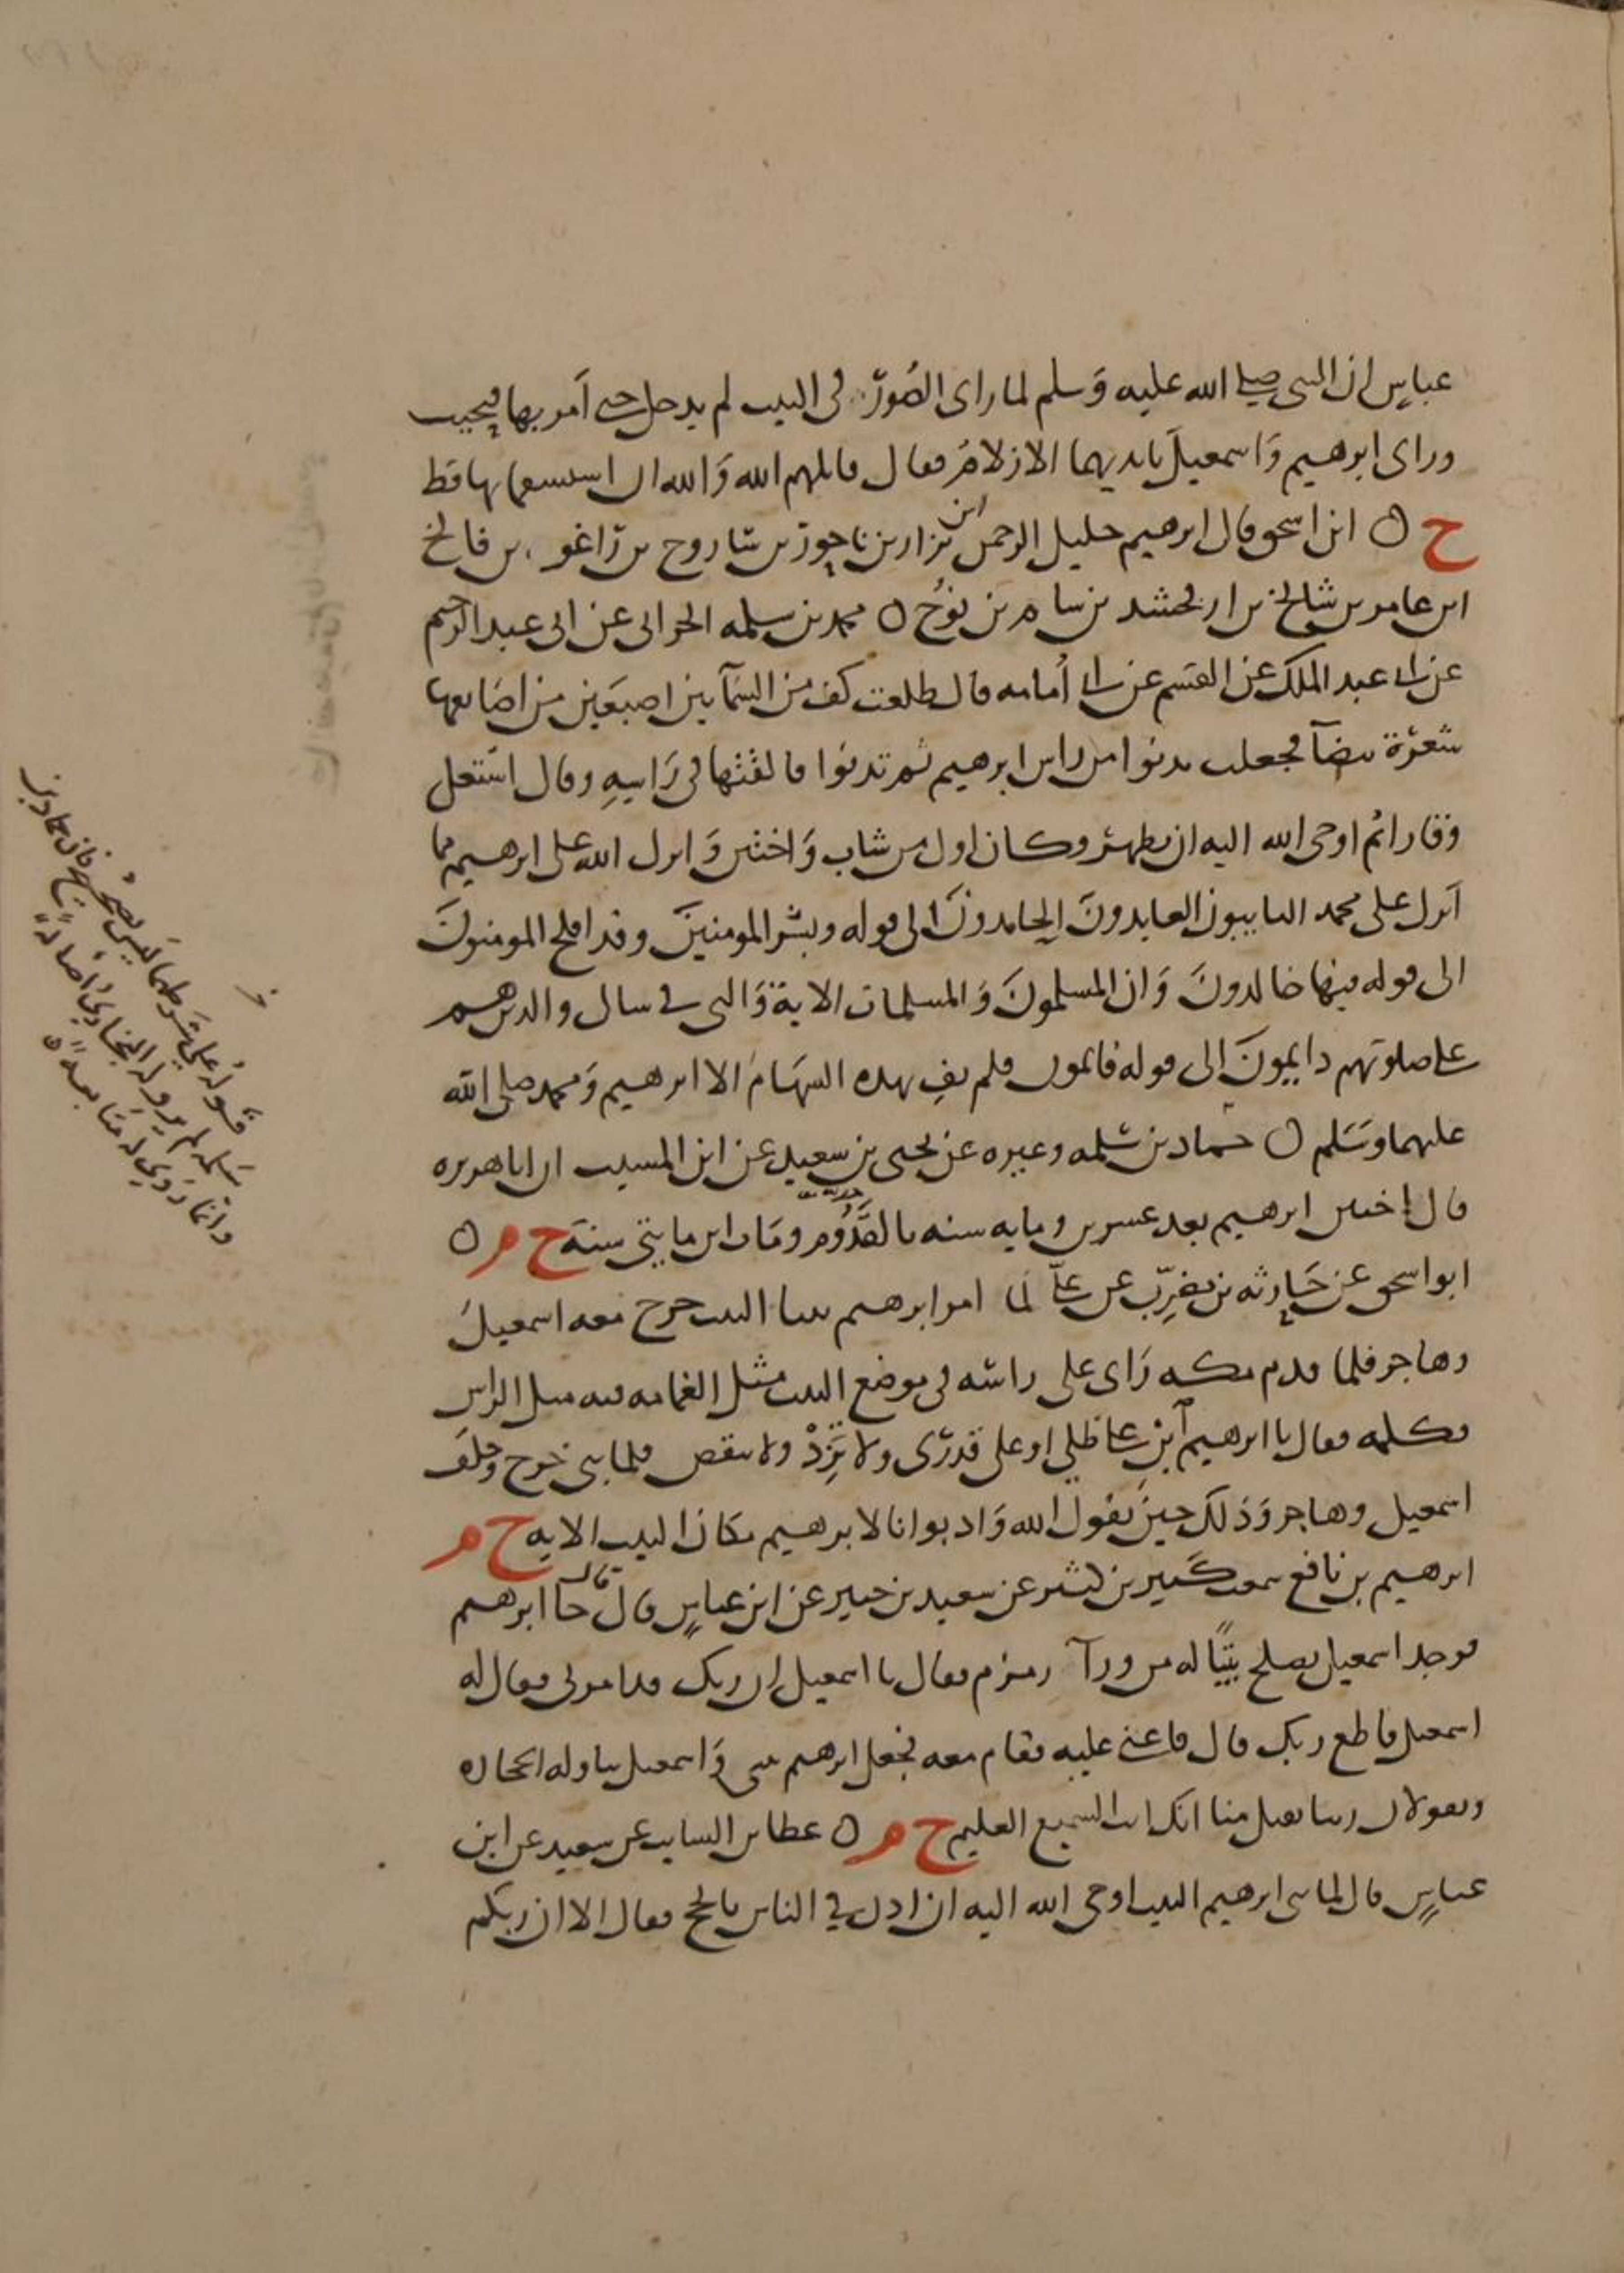 عباس ان النبى صلى الله عليه وسلم لما راى الصور فى البيت لم يدخل حتى امر بها فمحيت
وراى ابرهيم واسمعيل بايديهما الازلام فقال قاتلهم الله والله ان استقسما بها قط
خ ابن اسحق قال ابرهيم خليل الرحمن ابن تزار بن ناحور بن شاروح بن راغو بن فالخ
ابن عامر بن شالخ بن ارفخشد بن سام بن نوح محمد بن سلمه الحرانى عن ابى عبد الرحيم
عن ابى عبد الملك عن القسم عن ابى أمامه قال طلعت كف من السمآ بين اصبعين من اصابعها
شعرة بيضآ فجعلت تدنوا من راس ابرهيم ثم تدنوا فالقتها فى راسه وقال اشتعل
وقارا ثم اوحى الله اليه ان تطهر وكان اول من شاب واختتن وانزل الله على ابرهيم مما
انزل على محمد التايبون العابدون الحامدون الى قوله وبشر المومنين وقد افلح المومنون
الى قوله فيها خالدون وان المسلمون والمسلمات الاية والتى فى سال والذين هم
على صلوتهم دايمون الى قوله قائمون فلم يف بهذه السهام الا ابرهيم ومحمد صلى الله
عليهما وسلم حماد بن سلمه وغيره عن يحيى بن سعيد عن ابن المسيب ان ابا هريره
قال اختتن ابرهيم بعد عشرين ومايه سنه بالقدوم ومات ابن مايتى سنة خ م
ابو اسحق عن حارثه بن مضرب عن على لما امر ابرهيم ببنا البيت خرج معه اسمعيل
وهاجر فلما قدم مكه راى على راسه فى موضع البيت مثل الغمامه فيه مثل الراس
فكلمه فقال يا ابرهيم ابن على ظلى او على قدرى ولا تزد ولا تنقص فلما بنى خرج وخلف
اسمعيل وهاجر وذلك حين يقول الله واذ بوانا لابرهيم مكان البيت الايه خ م
ابرهيم بن نافع سمعت كثير بن كثير عن سعيد بن جبير عن ابن عباس قال قال جآ ابرهيم
فوجد اسمعيل يصلح بيتا له من ورآ زمزم فقال يا اسمعيل ان ربك قد امرنى فقال له
اسمعيل فاطع ربك قال فاعنى عليه فقام معه فجعل ابرهيم يبنى واسمعيل يناوله الحجاره
ويقولان ربنا تقبل منا انك انت السميع العليم خ م عطا بن السايب عن سعيد عن ابن
عباس قال لما بنى ابرهيم البيت اوحى الله اليه ان اذن فى الناس بالحج فقال الا ان ربكم
قوله على شرطهما ليس بصحيح فان حماد بن
سلمه لم يرو له البخارى اصالة
وانما روى له متابعة